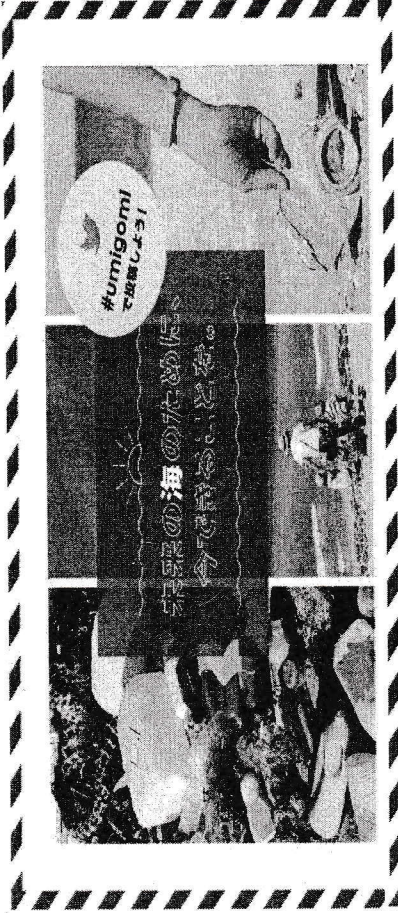 #umigomi
で投稿しよう!
未来の海のために、
今できることを。